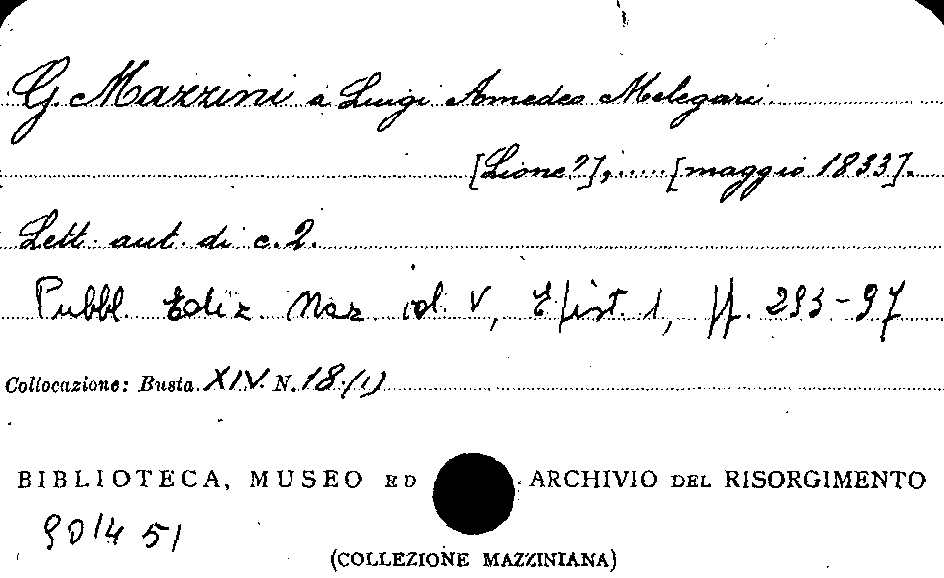 G. Mazzini a Luigi Amedeo Melegari
[Lione?], ..... [maggio 1833].
Lett. aut. di c. 2.
Pubbl. Ediz. Naz. vol. V, Epist. 1, pp. 293-97
Collocazione: Busta XIV N. 18 (1)
BIBLIOTECA, MUSEO ED ARCHIVIO DEL RISORGIMENTO
90/4 51
(COLLEZIONE MAZZINIANA)